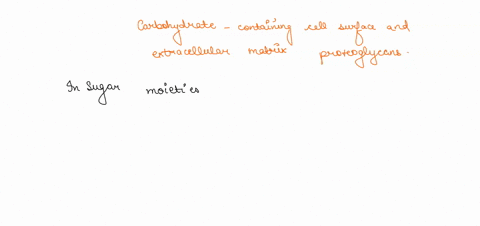 Carbohydrate - containing cell surface and
extracellular matrix proteoglycans.
In Sugar moieties